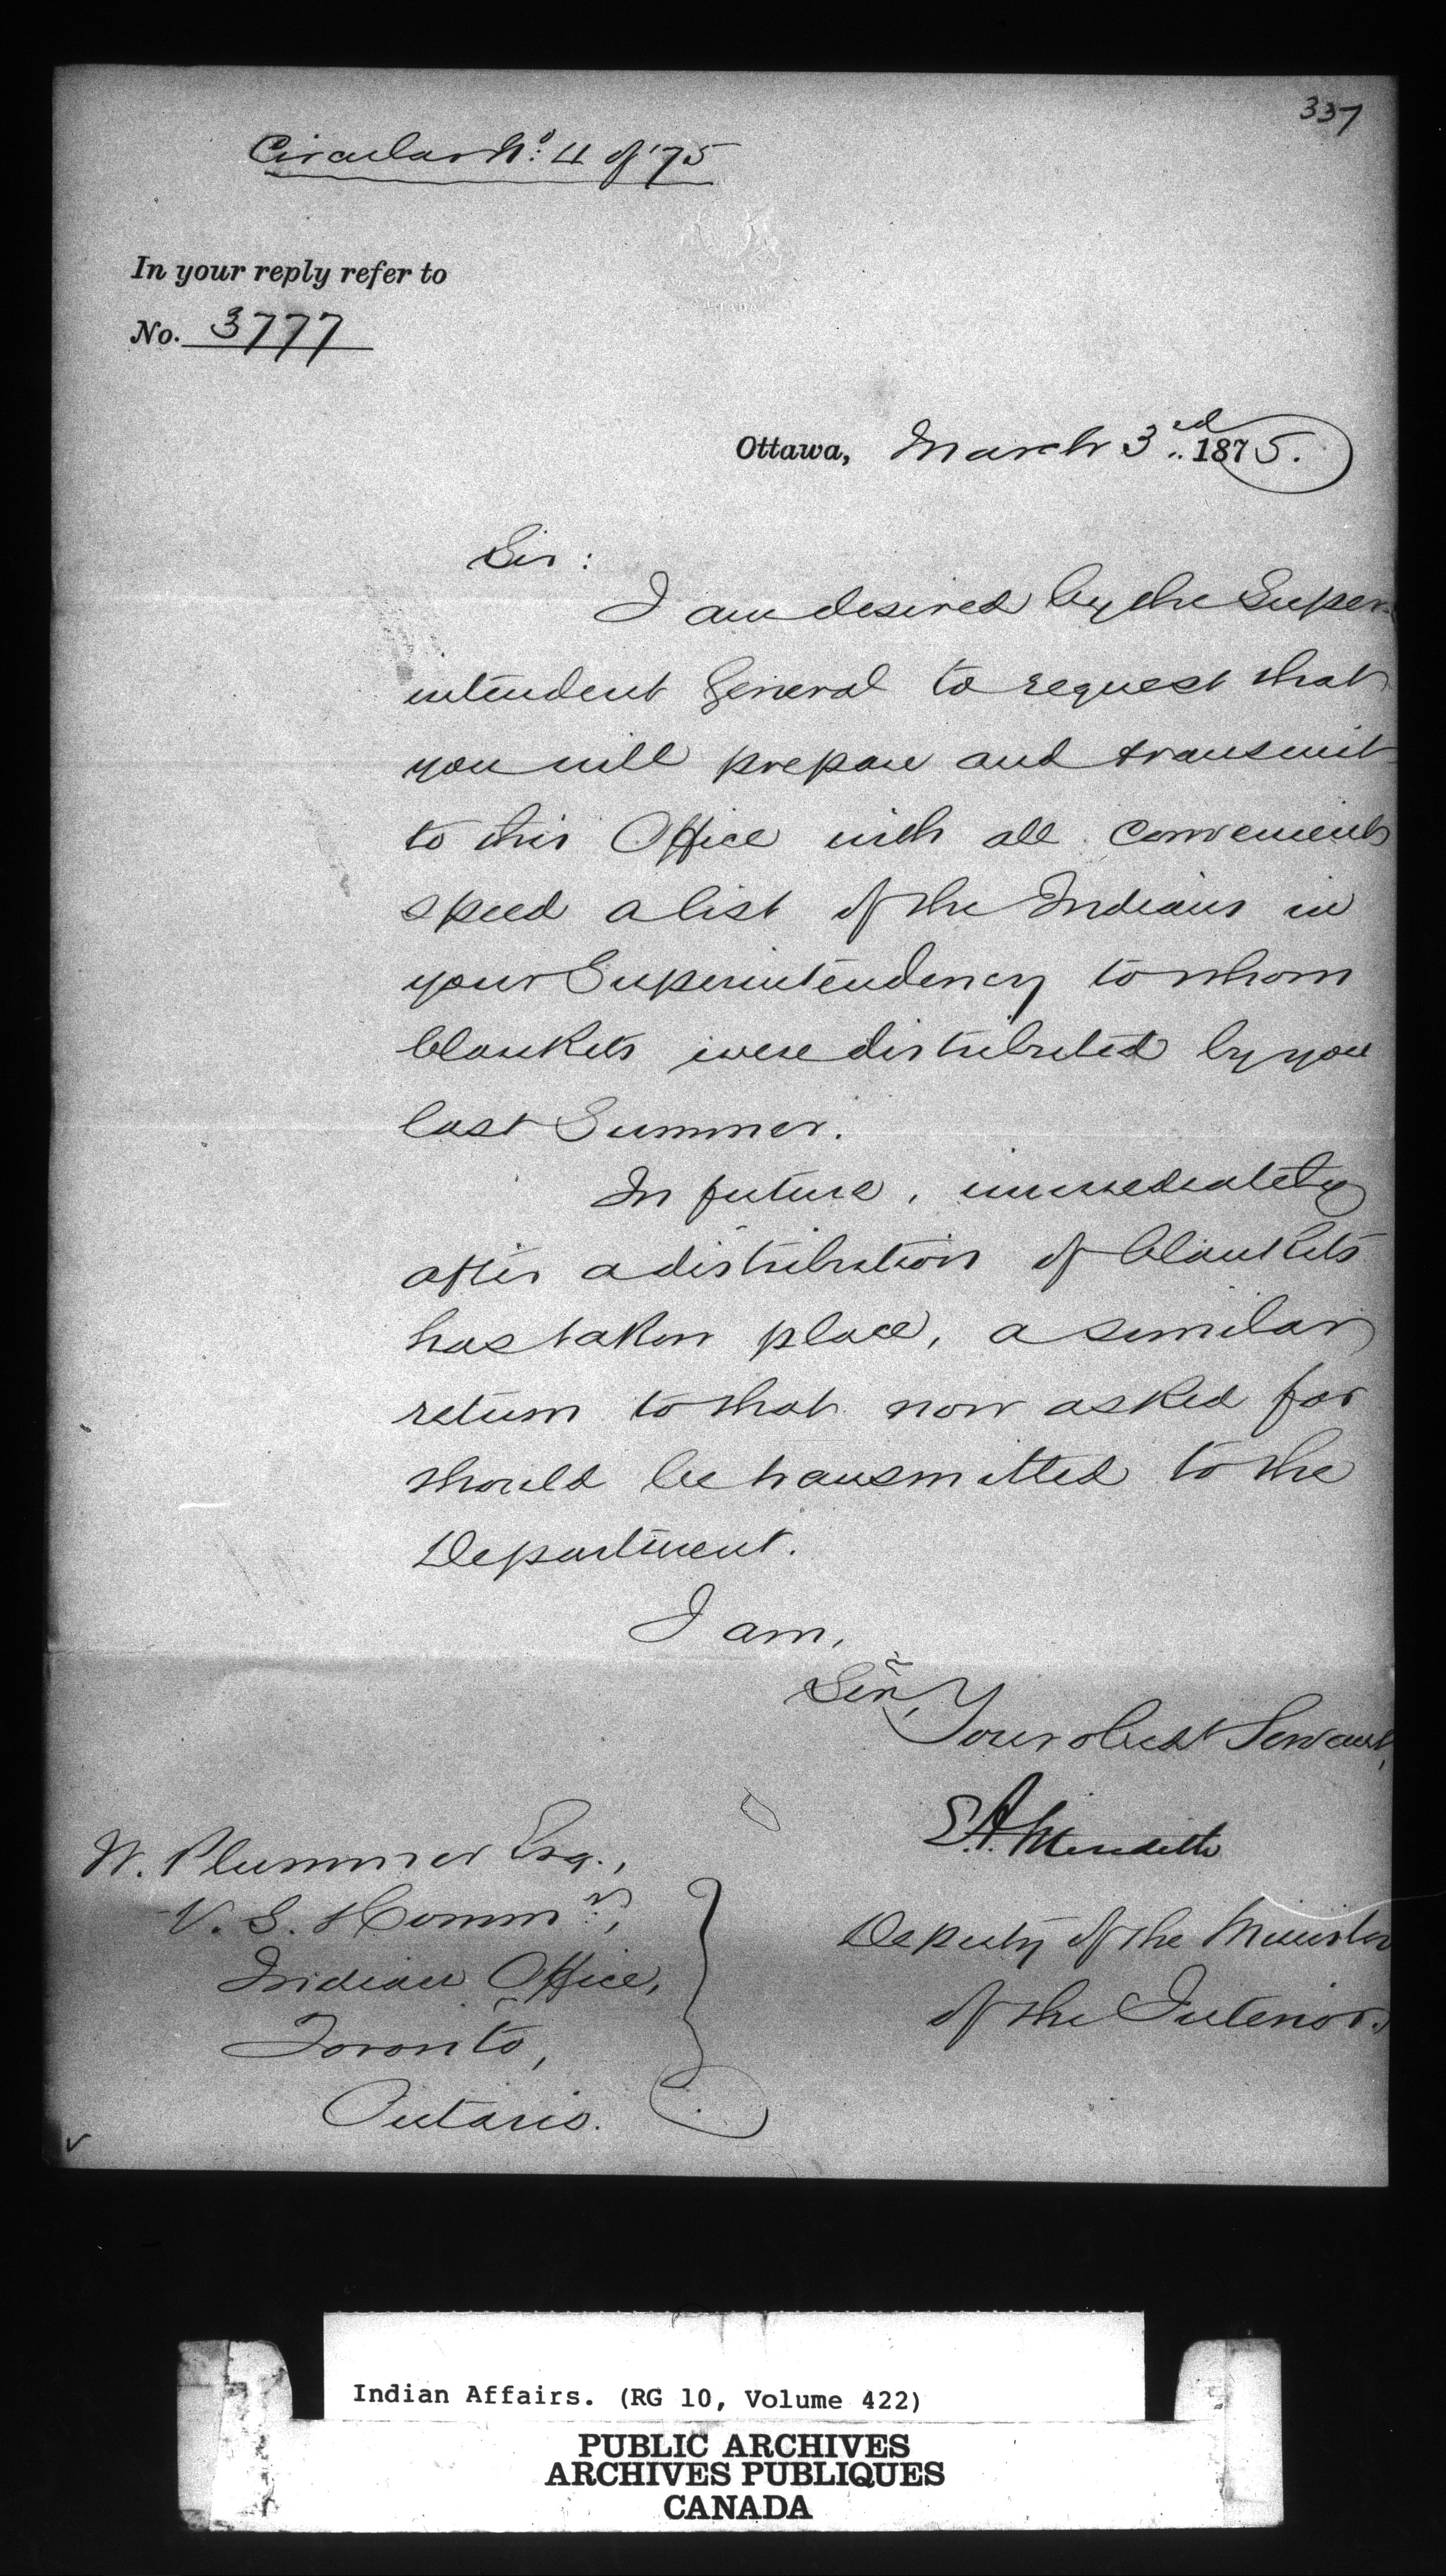 337
Circular No: 4 of '75
In your reply refer to
No. 3777
Ottawa, March 3rd 1875.
Sir:
I am desired by the Super-
intendent General to request that
you will prepare and transmit
to this Office with all convenient
speed a list of the Indians in
your Superintendency to whom
blankets were distributed by you
last Summer.
In future, immediately
after a distribution of blankets
has taken place, a similar
return to that now asked for
should be transmitted to the
Department.
I am,
Sir,
Your obedt Servant,
E.A. Meredith
Deputy of the Minister
of the Interior.
W. Plummer Esq.,
V. S. & Commr,
Indian Office,
Toronto,
Ontario.
Indian Affairs. (RG 10, Volume 422)
PUBLIC ARCHIVES
ARCHIVES PUBLIQUES
CANADA